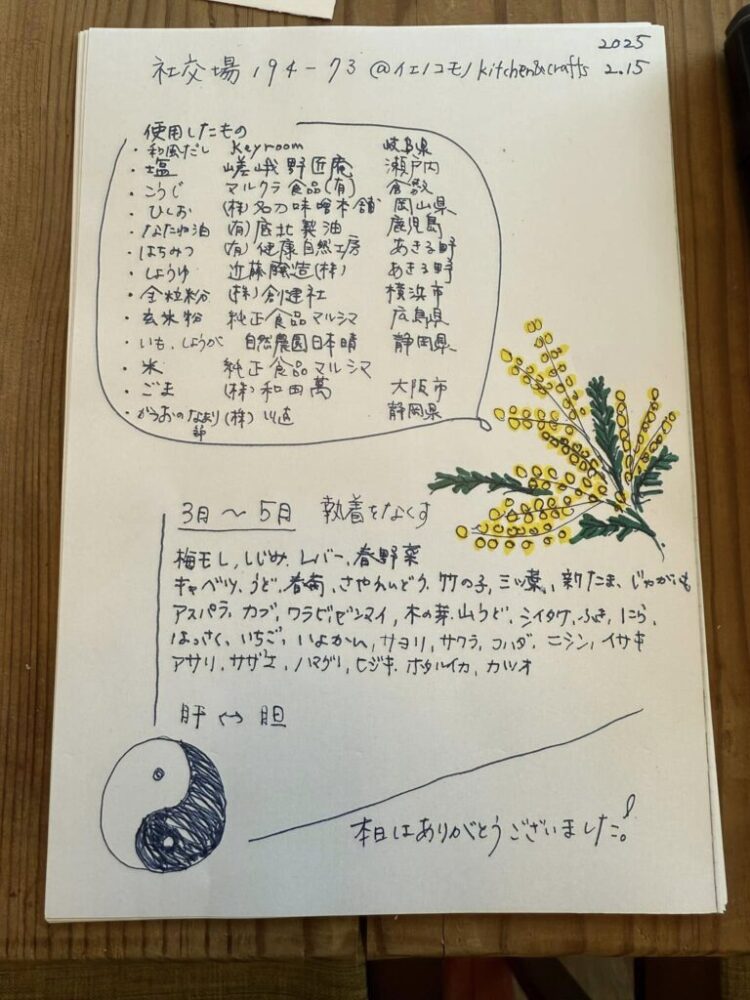 2025
社交場 194-73 @イエノコモノ kitchen&crafts 2.15
使用したもの
・和風だし Keyroom 岐阜県
・塩 嵯峨野匠庵 瀬戸内
・こうじ マルクラ食品(有) 倉敷
・ひしお (株)名刀味噌本舗 岡山県
・なたね油 (有)鹿北製油 鹿児島
・はちみつ (有)健康自然工房 あきる野
・しょうゆ 近藤醸造(株) あきる野
・全粒粉 (株)創健社 横浜市
・玄米粉 純正食品マルシマ 広島県
・いも、しょうが 自然農園日本晴 静岡県
・米 純正食品マルシマ
・ごま (株)和田萬 大阪市
・かつおのなまり節 (株) 静岡県
3月〜5月 執着をなくす
梅干し、しじみ、レバー、春野菜
キャベツ、うど、春菊、さやえんどう、竹の子、三ツ葉、新たま、じゃがいも
アスパラ、カブ、ワラビ、ゼンマイ、木の芽、山うど、シイタケ、ふき、にら、
はっさく、いちご、いよかん、サヨリ、サワラ、コハダ、ニシン、イサキ
アサリ、サザエ、ハマグリ、ヒジキ、ホタルイカ、カツオ
肝↔胆
本日はありがとうございました。